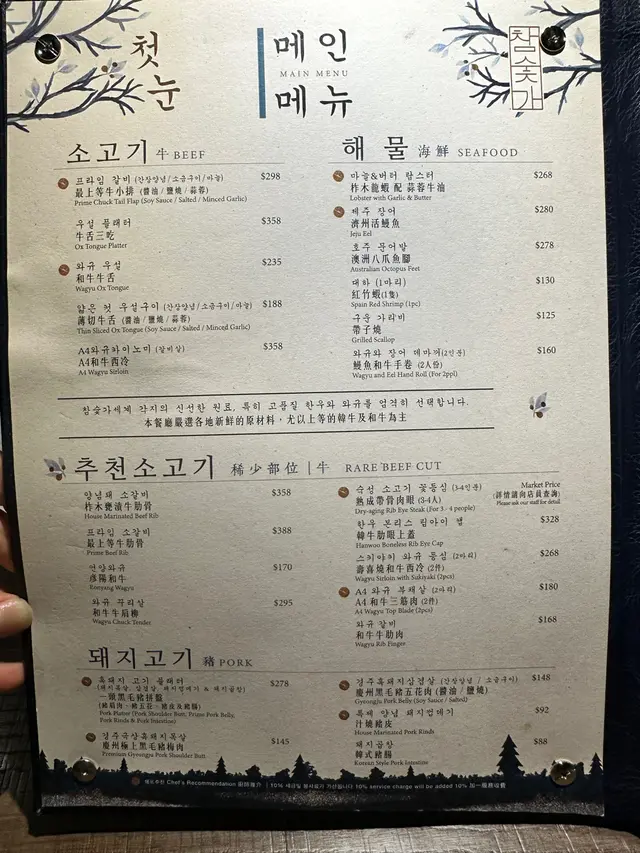 첫눈
메인
MAIN MENU
메뉴
참숯가
소고기 牛 BEEF
프라임 갈비 (간장양념/소금구이/마늘) $298
最上等牛小排 (醬油 / 鹽燒 / 蒜蓉)
Prime Chuck Tail Flap (Soy Sauce / Salted / Minced Garlic)
우설 플래터 $358
牛舌三吃
Ox Tongue Platter
와규 우설 $235
和牛牛舌
Wagyu Ox Tongue
얇은 컷 우설구이 (간장양념/소금구이/마늘) $188
薄切牛舌 (醬油 / 鹽燒 / 蒜蓉)
Thin Sliced Ox Tongue (Soy Sauce / Salted / Minced Garlic)
A4와규차이노미 (갈비살) $358
A4和牛西冷
A4 Wagyu Sirloin
해물 海鮮 SEAFOOD
마늘&버터 랍스터 $268
柞木龍蝦 配 蒜蓉牛油
Lobster with Garlic & Butter
제주 장어 $280
濟州活鰻魚
Jeju Eel
호주 문어발 $278
澳洲八爪魚腳
Australian Octopus Feet
대하 (1마리) $130
紅竹蝦(1隻)
Spain Red Shrimp (1pc)
구운 가리비 $125
帶子燒
Grilled Scallop
와규와 장어 데마끼(2인분) $160
鰻魚和牛手卷 (2人份)
Wagyu and Eel Hand Roll (For 2ppl)
참숯가세계 각지의 신선한 원료, 특히 고품질 한우와 와규를 엄격히 선택합니다.
本餐廳嚴選各地新鮮的原材料，尤以上等的韓牛及和牛為主
추천소고기 稀少部位 | 牛 RARE BEEF CUT
양념돼 소갈비 $358
柞木甕漬牛肋骨
House Marinated Beef Rib
프라임 소갈비 $388
最上等牛肋骨
Prime Beef Rib
언양와규 $170
彥陽和牛
Eonyang Wagyu
와규 꾸리살 $295
和牛牛肩柳
Wagyu Chuck Tender
숙성 소고기 꽃등심 (3-4인분) Market Price
熟成帶骨肉眼 (3-4人) (詳情請向店員查詢)
Dry-aging Rib Eye Steak (For 3 - 4 people) Please ask our staff for detail
한우 본리스 립아이 캡 $328
韓牛肋眼上蓋
Hanwoo Boneless Rib Eye Cap
스키야키 와규 등심 (2마리) $268
壽喜燒和牛西冷 (2件)
Wagyu Sirloin with Sukiyaki (2pcs)
A4 와규 부채살 (2마리) $180
A4 和牛三筋肉 (2件)
A4 Wagyu Top Blade (2pcs)
와규 갈비 $168
和牛牛肋肉
Wagyu Rib Finger
돼지고기 豬 PORK
흑돼지 고기 플래터 $278
一頭黑毛豬拼盤
(豬肩肉、豬五花、豬皮及豬腸)
Pork Platter (Pork Shoulder Butt, Prime Pork Belly,
Pork Rinds & Pork Intestine)
경주흑상흑돼지목살 $145
慶州極上黑毛豬梅肉
Premium Gyeongju Pork Shoulder Butt
경주흑돼지삼겹살 (간장양념 / 소금구이) $148
慶州黑毛豬五花肉 (醬油 / 鹽燒)
Gyeongju Pork Belly (Soy Sauce / Salted)
특제 양념 돼지껍데기 $92
汁燒豬皮
House Marinated Pork Rinds
돼지곱창 $88
韓式豬腸
Korean Style Pork Intestine
셰프추천 Chef's Recommendation 廚師推介 | 10% 세금및 봉사료가 가산됩니다 10% service charge will be added 10% 加一服務收費